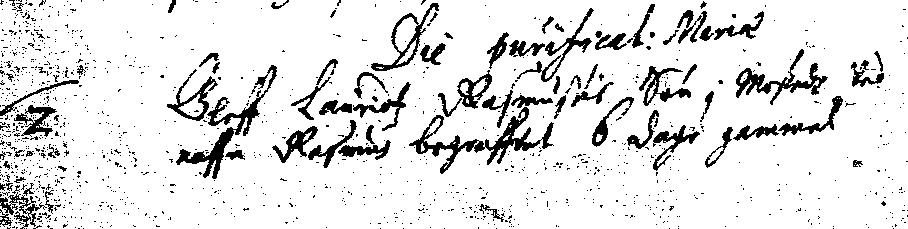 Die purificat: Mariæ
2 Bleff Lauridtz Rasmusis Søn i Mosede ved
naffn Rasmus begraffvet 6 dage gammel